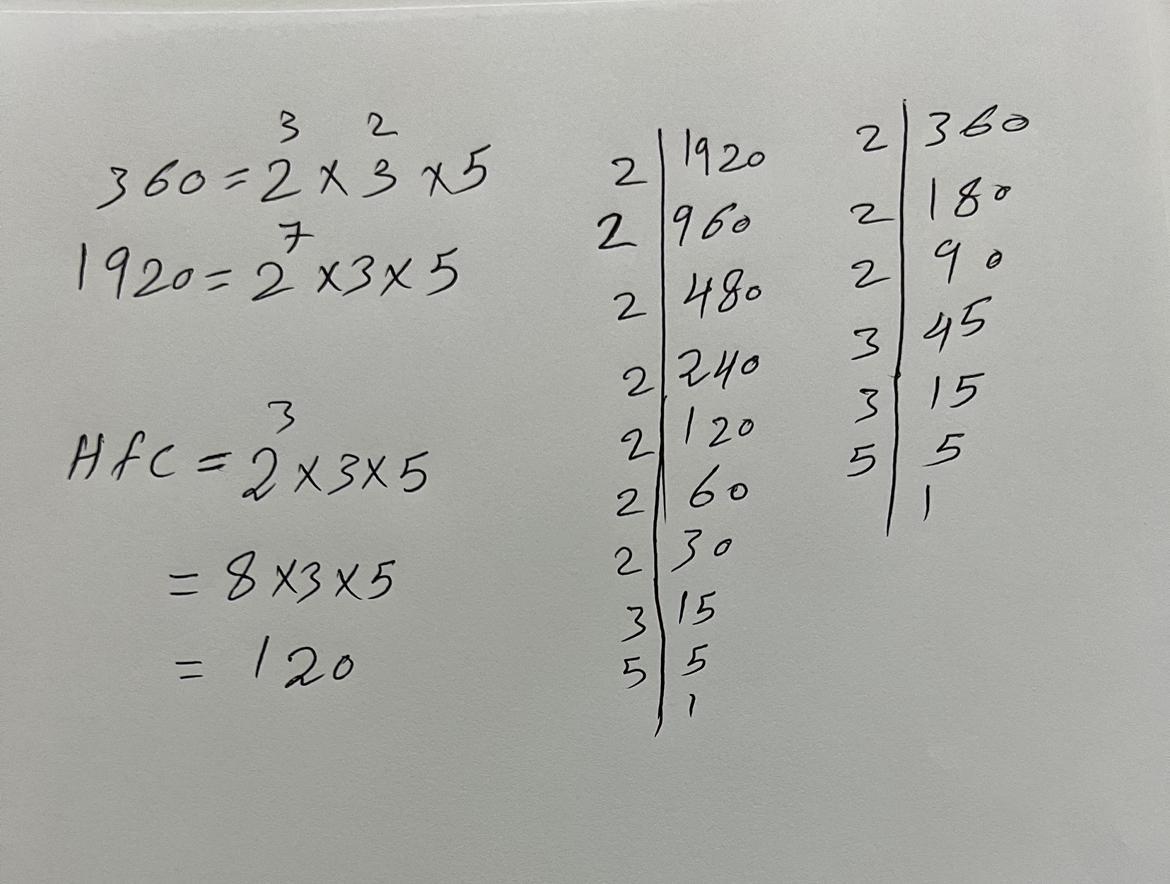 360 = 2³ × 3² × 5
1920 = 2⁷ × 3 × 5
HfC = 2³ × 3 × 5
= 8 × 3 × 5
= 120
2 | 1920
2 | 960
2 | 480
2 | 240
2 | 120
2 | 60
2 | 30
3 | 15
5 | 5
1
2 | 360
2 | 180
2 | 90
3 | 45
3 | 15
5 | 5
1